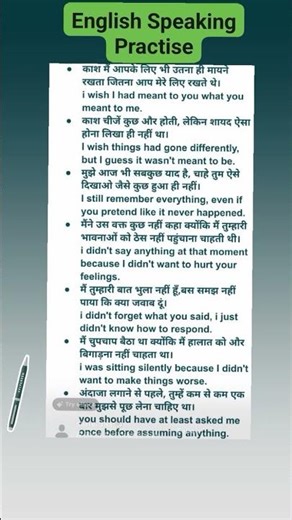 English Speaking
Practise
काश मैं आपके लिए भी उतना ही मायने
रखता जितना आप मेरे लिए रखते थे।
i wish I had meant to you what you
meant to me.
काश चीजें कुछ और होती, लेकिन शायद ऐसा
होना लिखा ही नहीं था।
I wish things had gone differently,
but I guess it wasn't meant to be.
मुझे आज भी सबकुछ याद है, चाहे तुम ऐसे
दिखाओ जैसे कुछ हुआ ही नहीं।
I still remember everything, even if
you pretend like it never happened.
मैंने उस वक्त कुछ नहीं कहा क्योंकि मैं तुम्हारी
भावनाओं को ठेस नहीं पहुंचाना चाहती थी।
i didn't say anything at that moment
because I didn't want to hurt your
feelings.
मैं तुम्हारी बात भुला नहीं हूँ,बस समझ नहीं
पाया कि क्या जवाब दूं।
i didn't forget what you said, i just
didn't know how to respond.
मैं चुपचाप बैठा था क्योंकि मैं हालात को और
बिगाड़ना नहीं चाहता था।
i was sitting silently because I didn't
want to make things worse.
अंदाजा लगाने से पहले, तुम्हें कम से कम एक
बार मुझसे पूछ लेना चाहिए था।
you should have at least asked me
once before assuming anything.